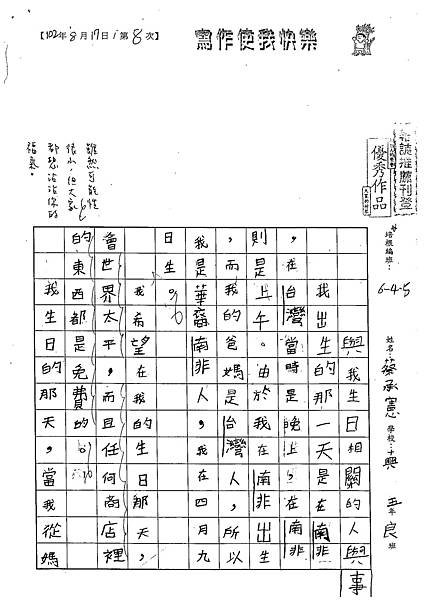 【102年8月17日第8次】
寫作使我快樂
雜誌推薦刊登
優秀作品
培根編班：6-4-5
姓名：蔡承憲 學校： 五年良班
與我生日相關的人與事
我出生的那一天是在南非
，在台灣當時是晚上，在南非
則是上午。由於我在南非出生
，而我的爸媽是台灣人，所以
我是華裔南非人。我在四月九
日生。
我希望在我的生日那天，
當世界太平，而且任何商店裡
的東西都免費的。
我生日的那天，當我從媽
雖然可能性
很小，但大家
都想沾沾你的
福氣。